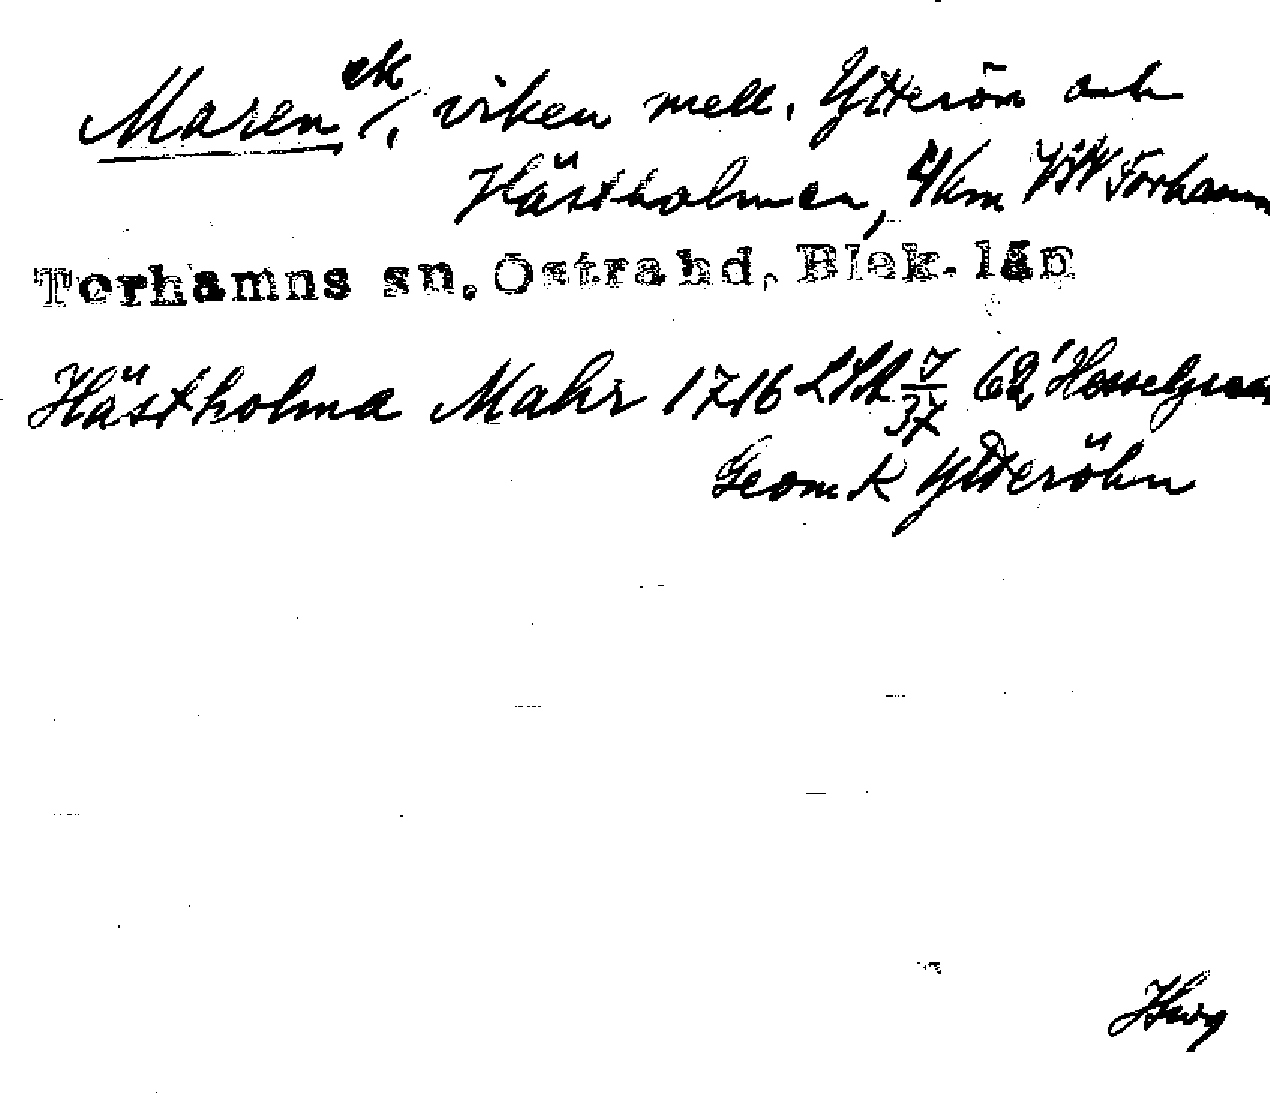 Maren ek, viken mell. Ytterön och
Hästholmen, 4 km Torhamn
Torhamns sn. Östra hd, Blek. län
Hästholma Mahr 1716 LSA J/37 62, Hesselgren
Geom K Ytteröhn